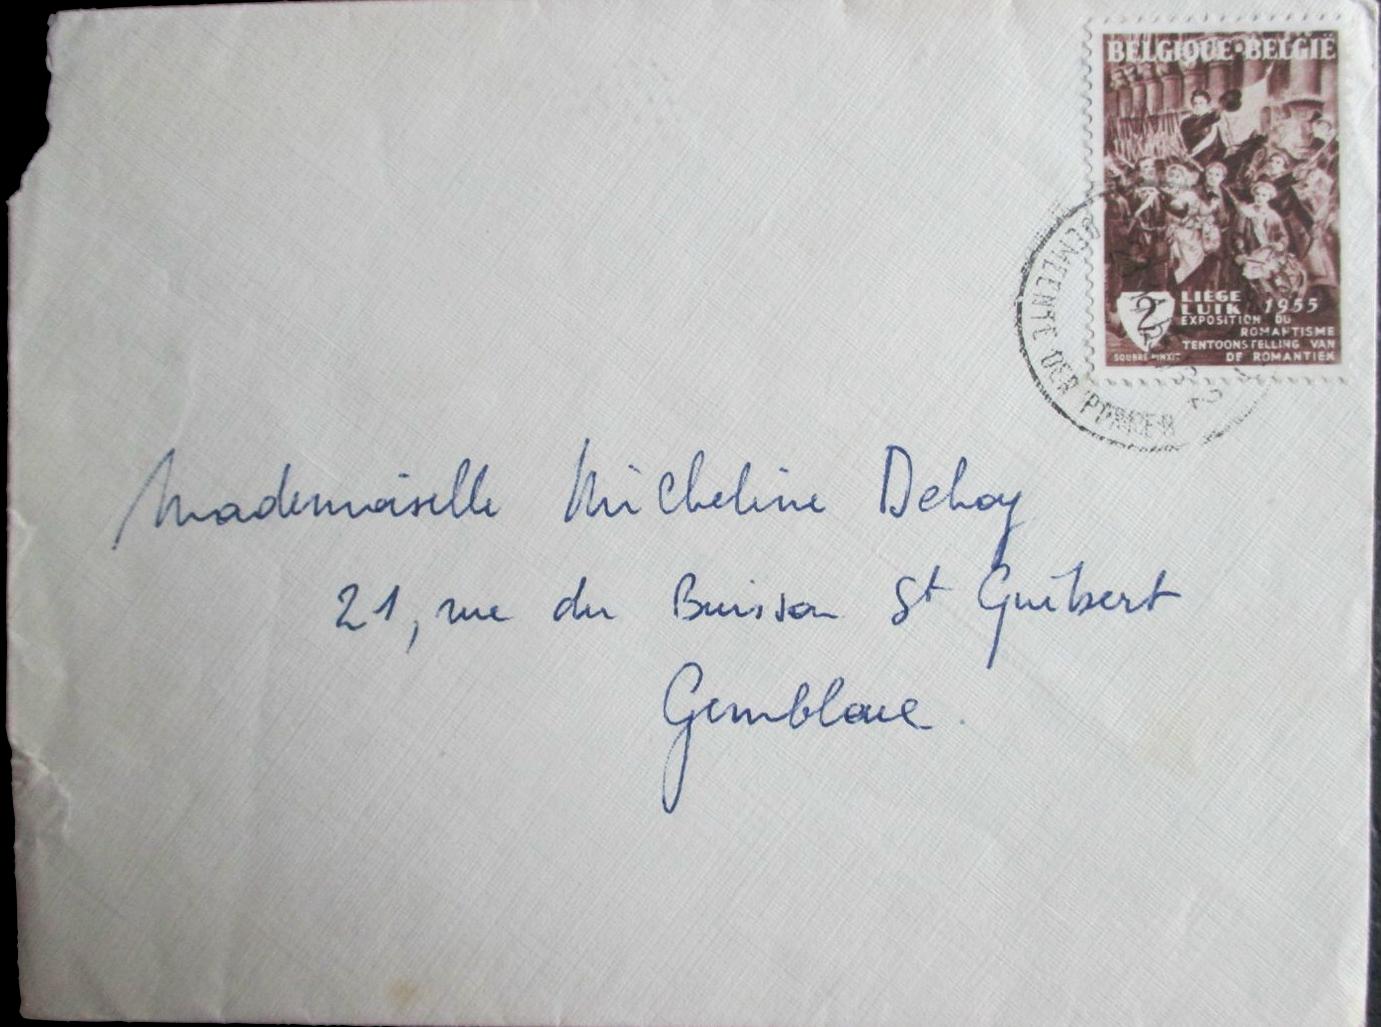 BELGIQUE·BELGIË
2
LIÈGE
LUIK 1955
EXPOSITION DU
ROMANTISME
TENTOONSTELLING VAN
DE ROMANTIEK
SOUBRE PINXIT
GEMEENTE DER
Mademoiselle Micheline Dehoy
21, rue du Buisson St Guibert
Gembloux